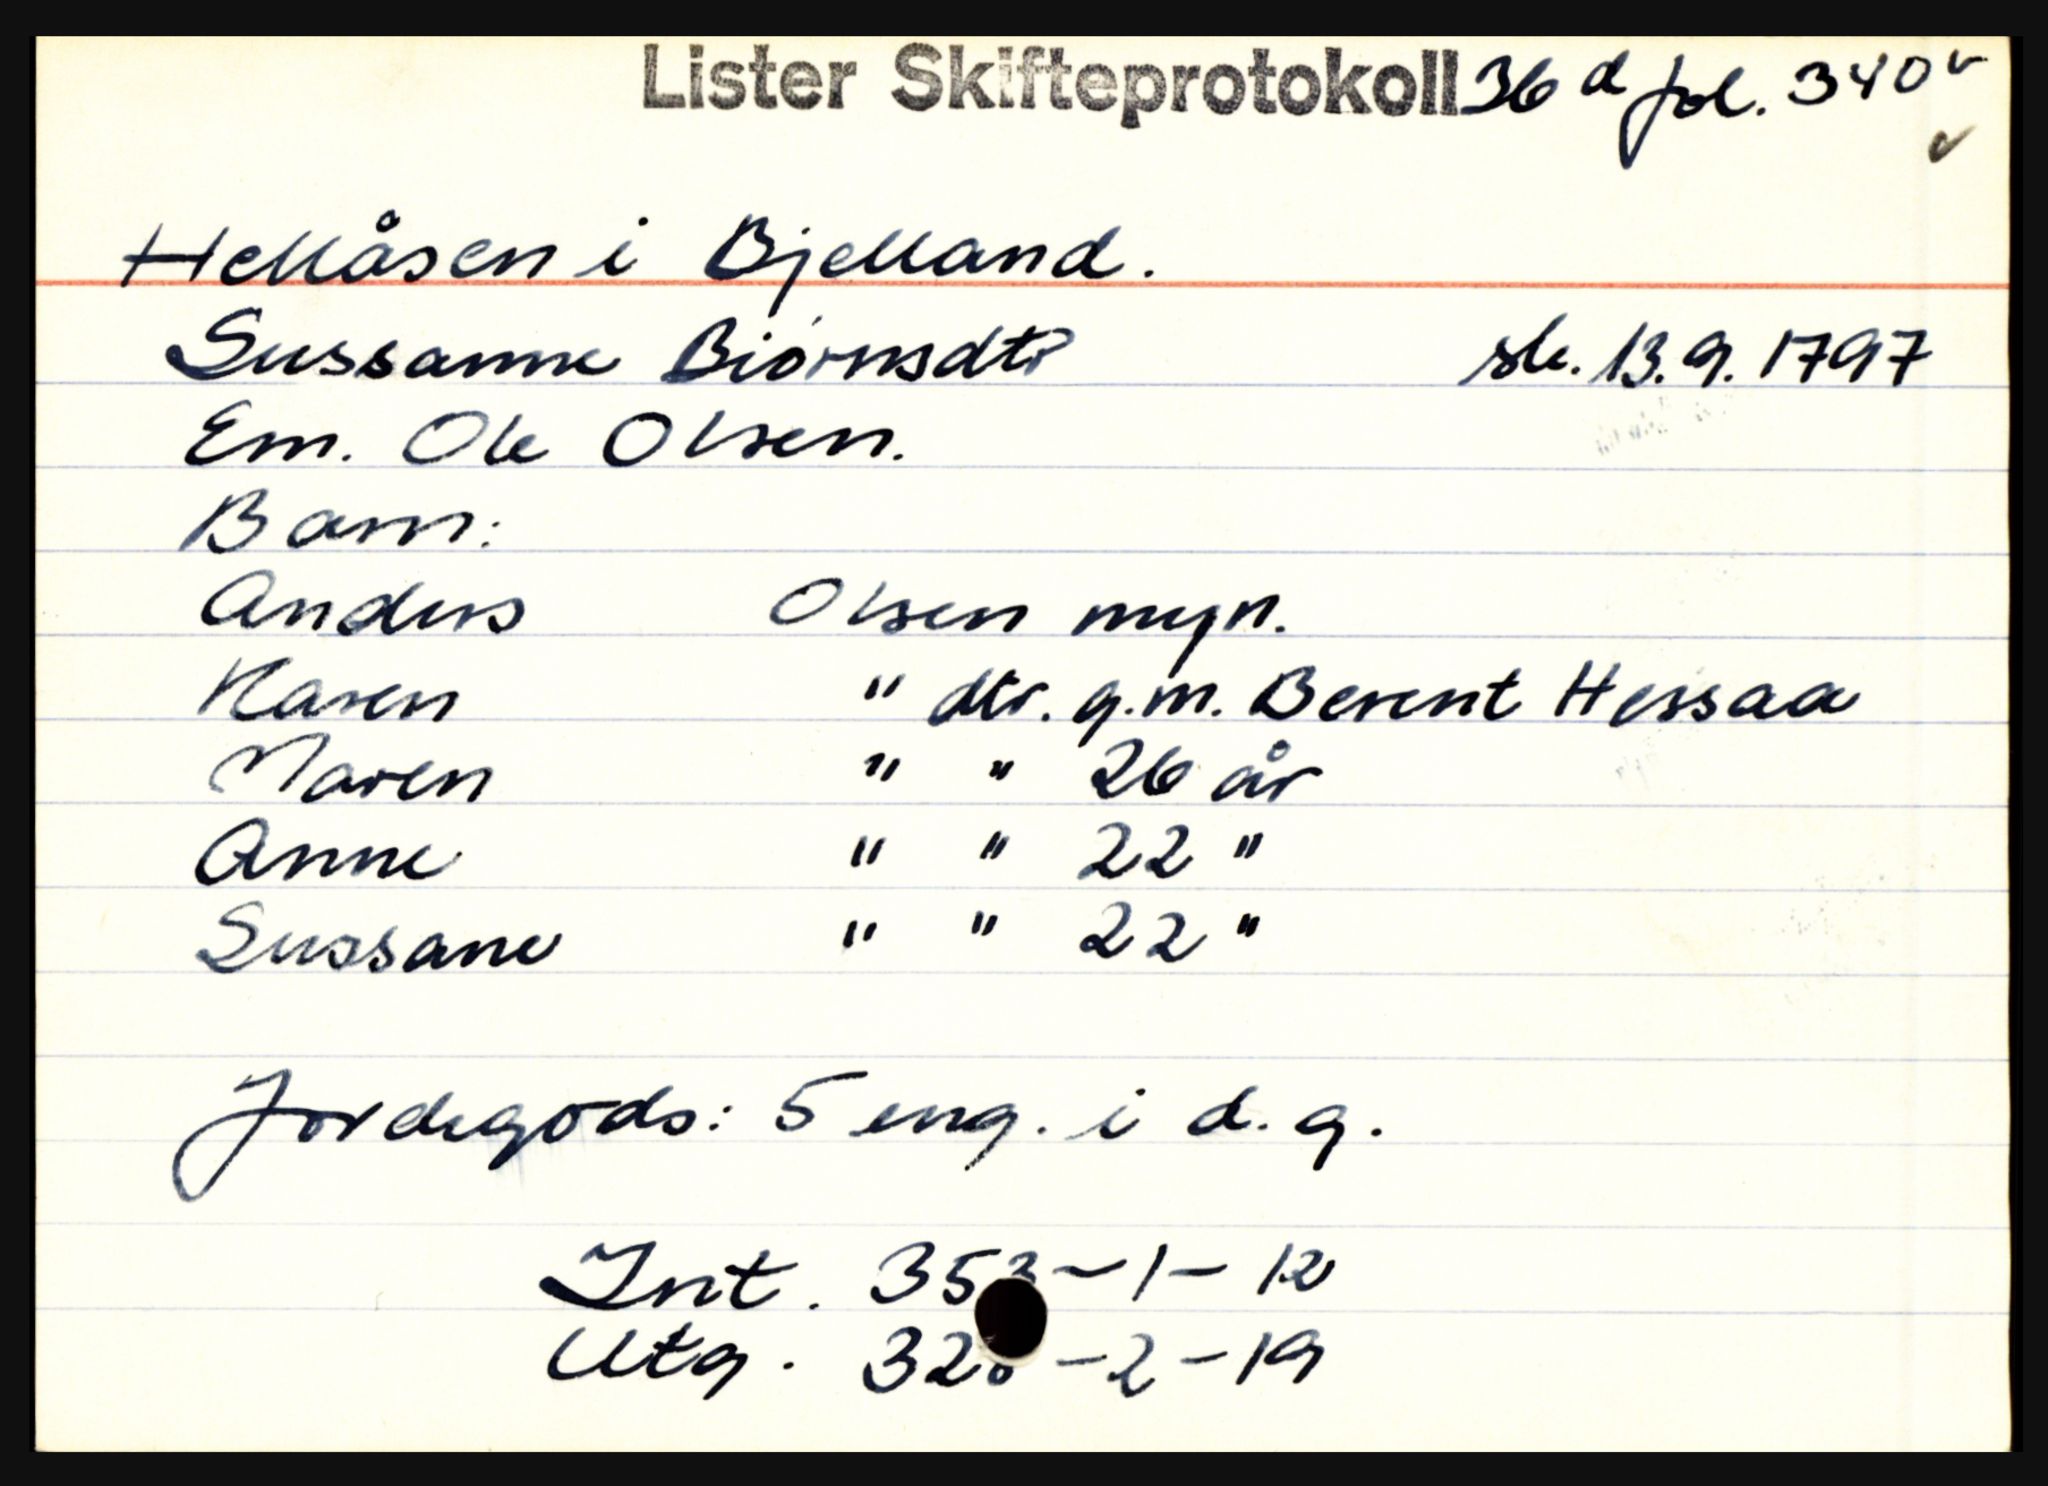 Lister Skifteprotokoll 36 d fol. 340 v
Hellåsen i Bjelland.
Sussanne Biørnsdtr sk. 13.9.1797
Em. Ole Olsen.
Barn:
Anders Olsen myn.
Karen " dtr. g.m. Berent Hessaa
Maren " " 26 år
Anne " " 22 "
Sussane " " 22 "
Jordegods: 5 eng. i d. g.
Int. 353 - 1 - 12
Utg. - 2 - 19